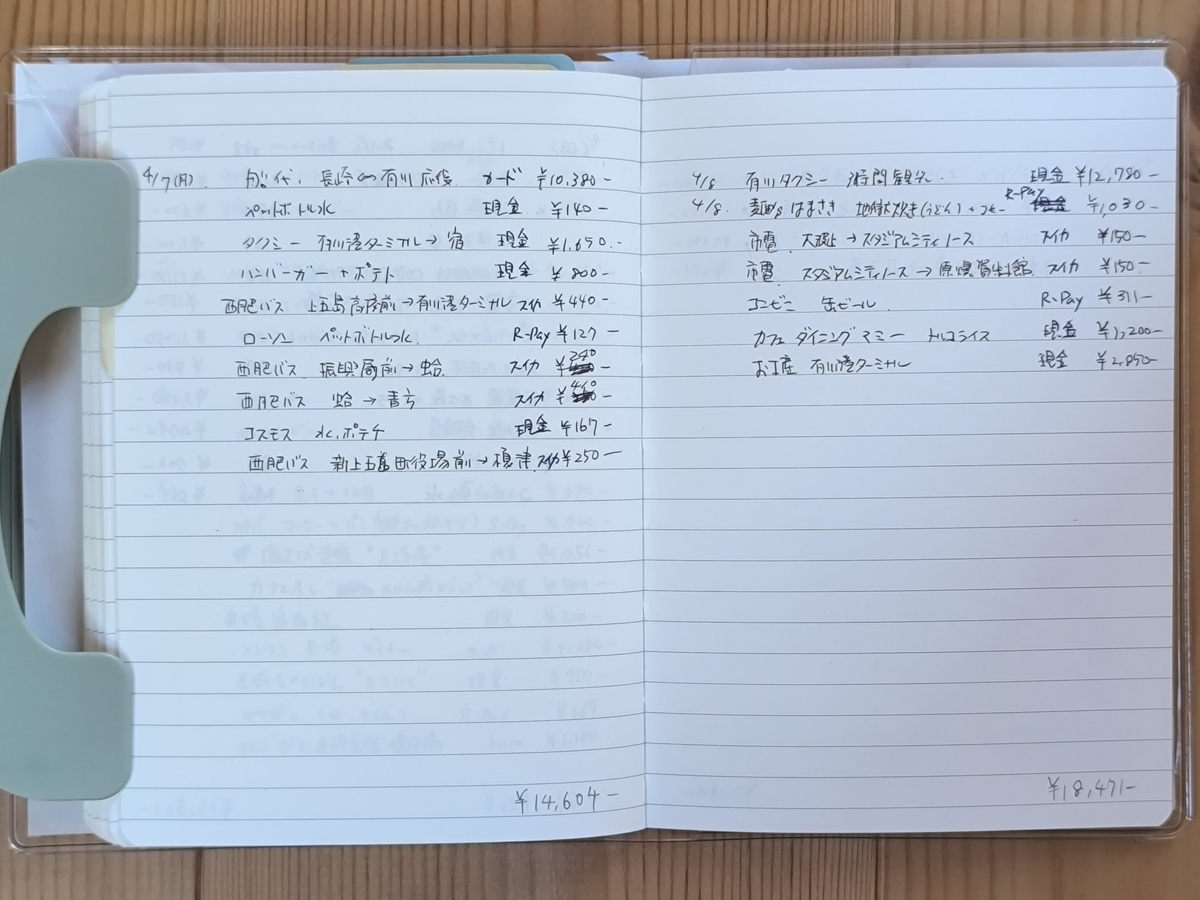 4/7(月) 船代. 長崎⇔有川 往復 カード ¥10,380-
ペットボトル水 現金 ¥140-
タクシー 有川港ターミナル→宿 現金 ¥1,650.-
ハンバーガー+ポテト 現金 ¥800-
西肥バス 上五島高校前→有川港ターミナル スイカ ¥440-
ローソン ペットボトル水 R-Pay ¥127-
西肥バス 振興局前→蛤 スイカ ¥240-
西肥バス 蛤→青方 スイカ
コスモス 水,ポテチ 現金 ¥167-
西肥バス 新上五島町役場前→榎津 スイカ ¥250-
¥14,604-
4/8 有川タクシー 2時間観光 現金 ¥12,780-
4/8. 麺's はまさき 地獄炊き(うどん)+コーヒー R-Pay ¥1,030-
市電 大波止→スタジアムシティノース スイカ ¥150-
市電 スタジアムシティノース→原爆資料館 スイカ ¥150-
コンビニ 缶ビール R-Pay ¥311-
カフェダイニングマミー トルコライス 現金 ¥1,200-
お土産 有川港ターミナル 現金 ¥2,850-
¥18,471-